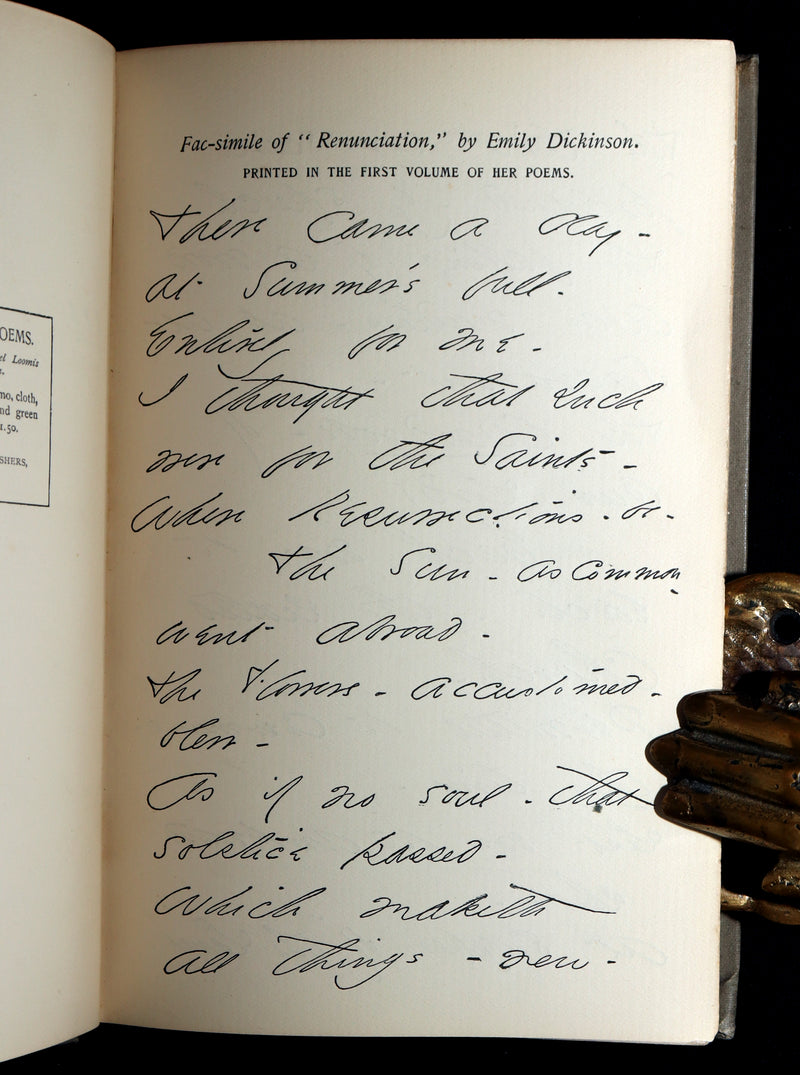 OEMS.
el Loomis
mo, cloth,
nd green
1.50.
SHERS,
Fac-simile of “Renunciation,” by Emily Dickinson.
PRINTED IN THE FIRST VOLUME OF HER POEMS.
There came a day -
at Summer's full -
Entirely for me -
I thought that such
were for the Saints -
Where Resurrections - be -
the Sun - as common -
went abroad -
the flowers - accustomed -
blew -
As if no soul - that
solstice passed -
Which maketh
all things - new -